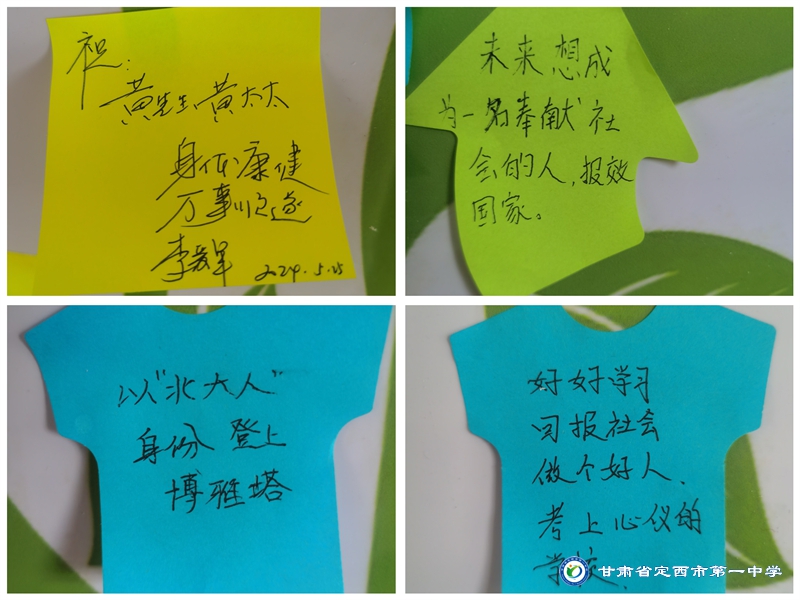 祝：
黄先生黄太太
身体康健
万事顺遂
李爱军 2024.5.25
未来想成
为一名奉献社
会的人，报效
国家。
以“北大人”
身份登上
博雅塔
好好学习
回报社会
做个好人、
考上心仪的
学校.
甘肃省定西市第一中学